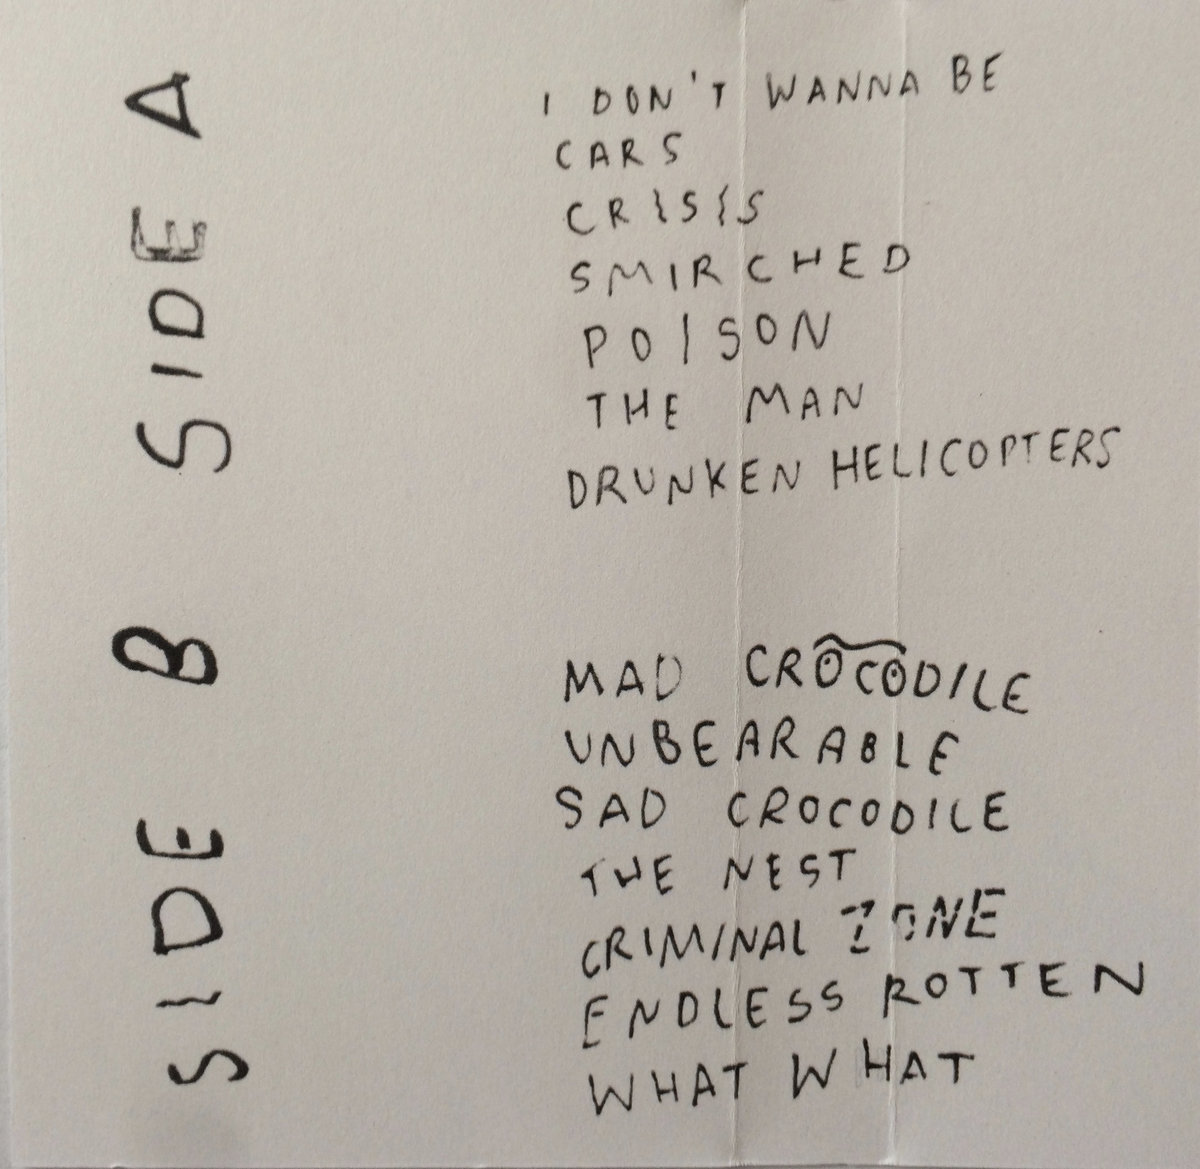 SIDE A
I DON'T WANNA BE
CARS
CRISIS
SMIRCHED
POISON
THE MAN
DRUNKEN HELICOPTERS
SIDE B
MAD CROCODILE
UNBEARABLE
SAD CROCODILE
THE NEST
CRIMINAL ZONE
ENDLESS ROTTEN
WHAT WHAT